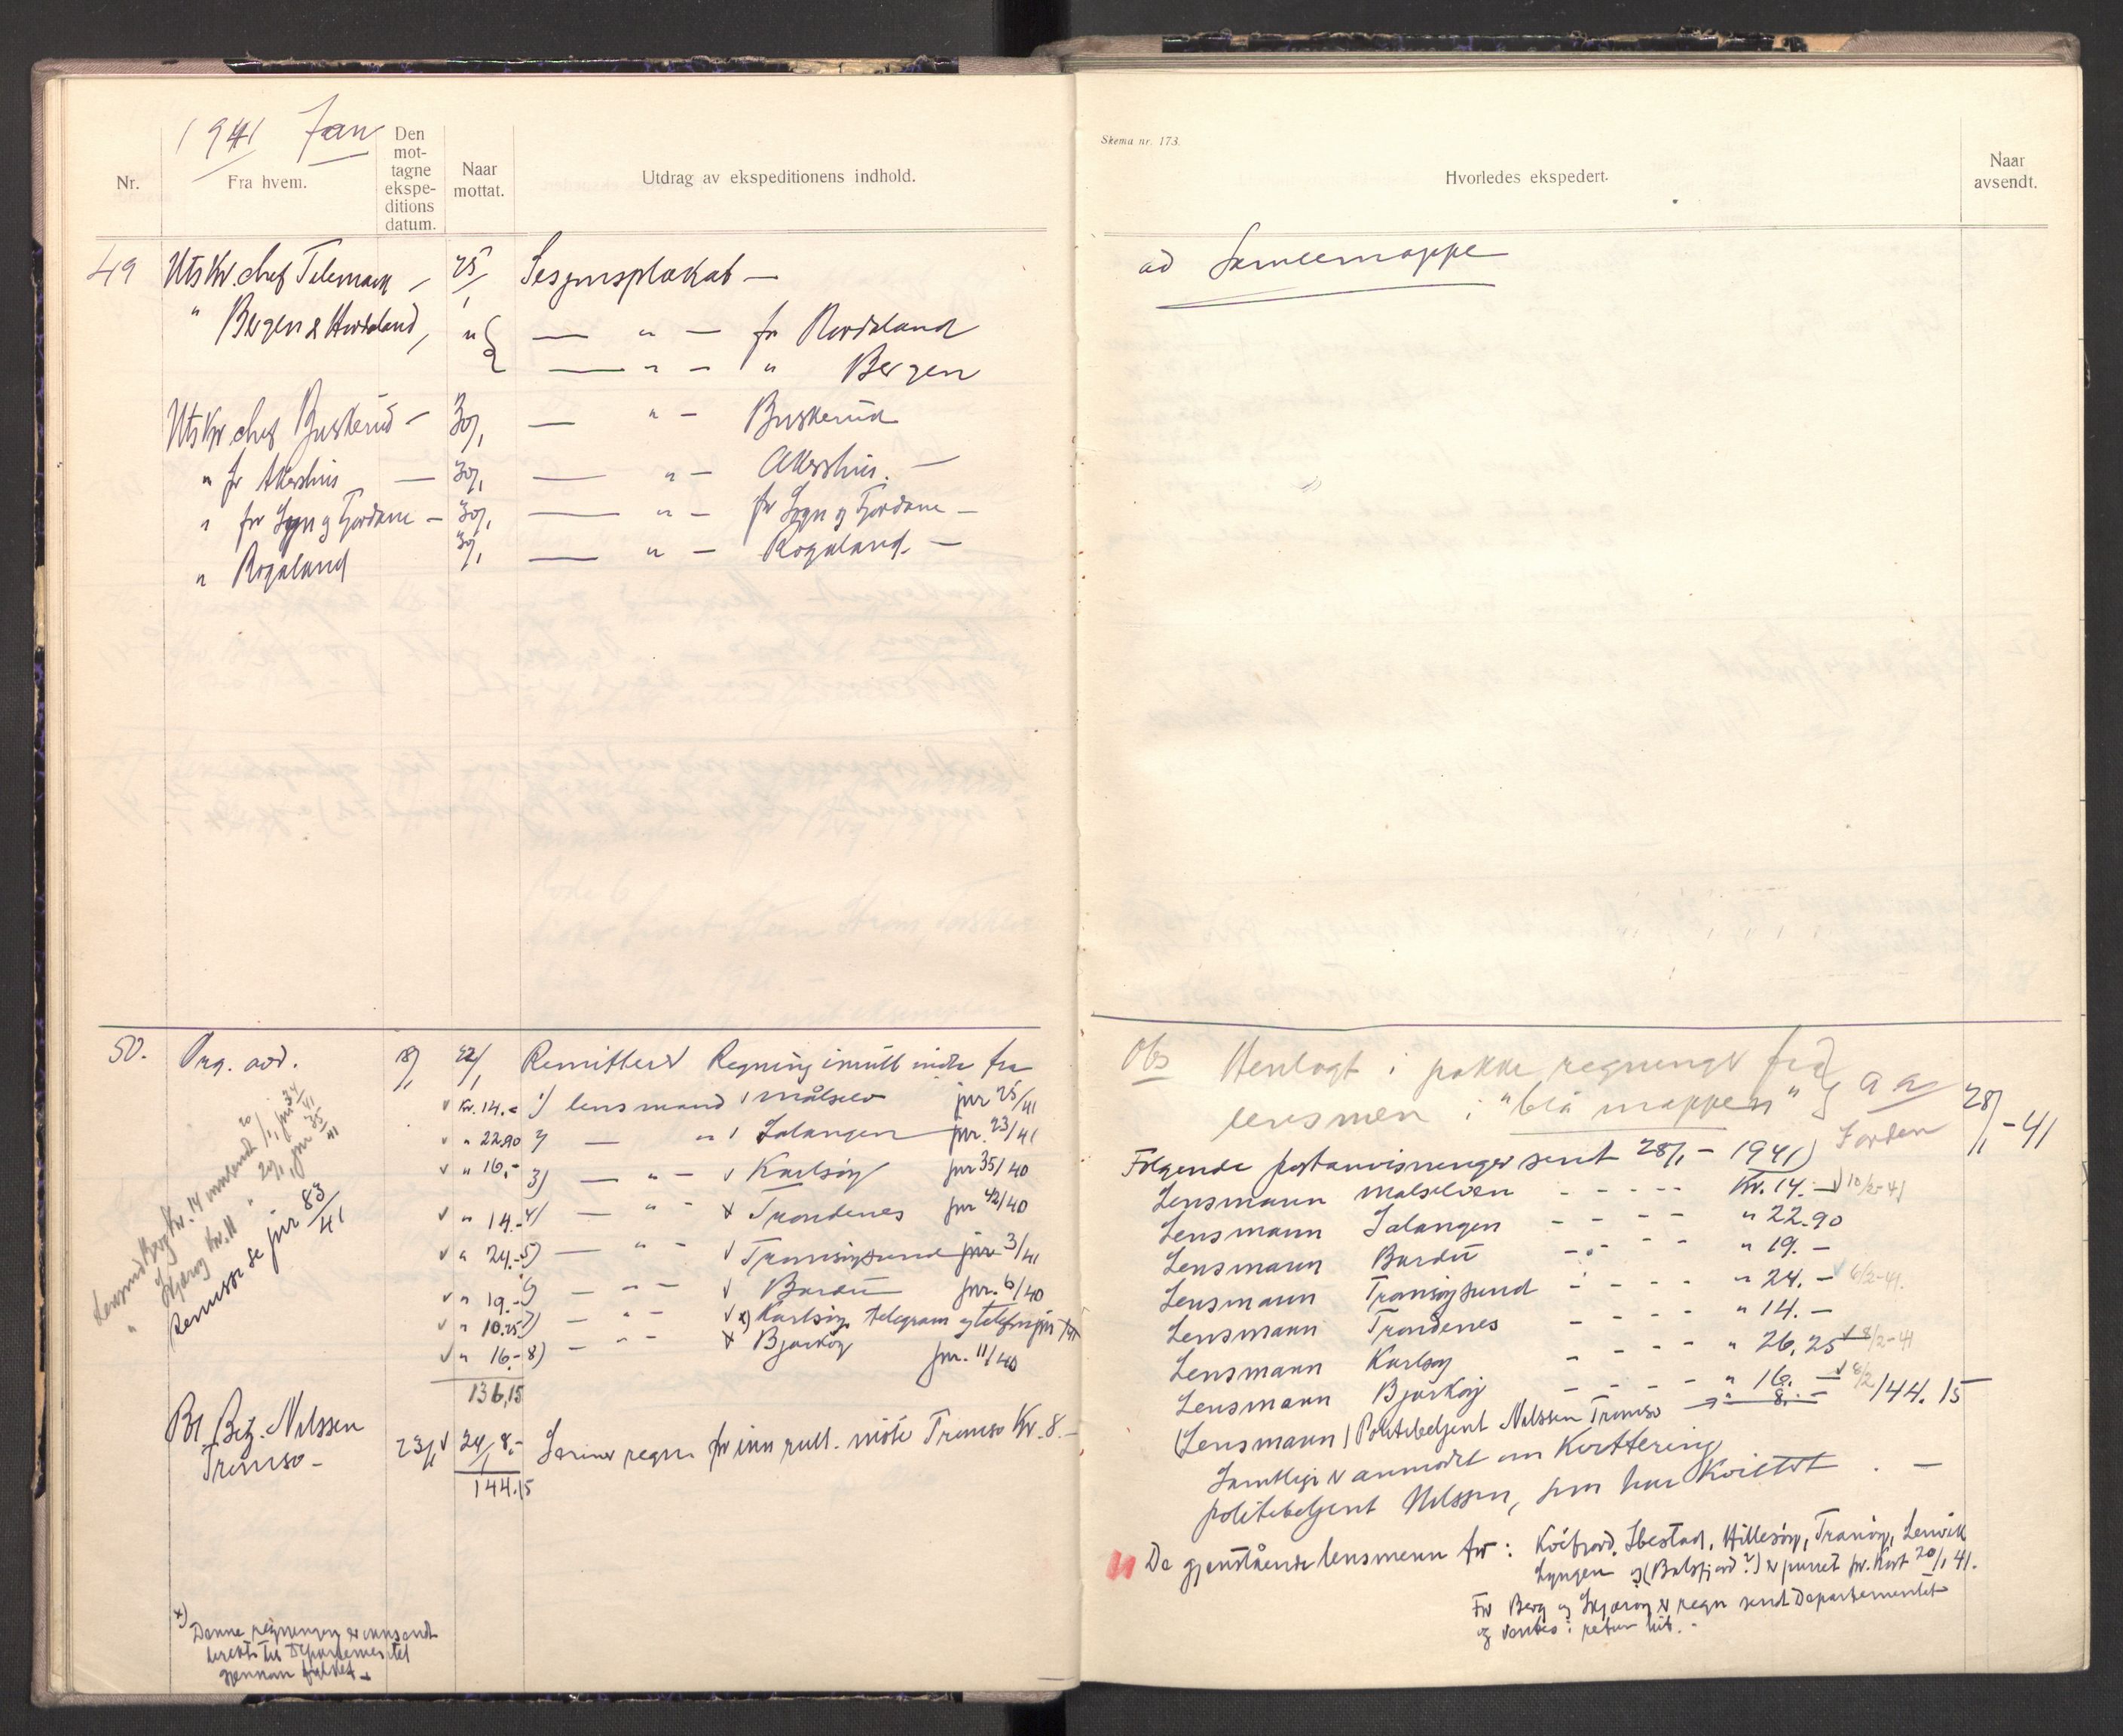 1941 Jan
Nr.
Fra hvem.
Den mot-
tagne
ekspe-
ditions
datum.
Naar
mottat.
Utdrag av ekspeditionens indhold.
49 Utskr. chef Telemark - 25/1 Sesjonsplakat -
" Bergen & Hordaland, " { — " — for Hordaland
— " — " Bergen
Utskr chef Buskerud - 30/1 — " — Buskerud
" for Akershus — 30/1 — " — Akershus. —
" for Sogn og Fjordane - 30/1 — " — for Sogn og Fjordane -
" Rogaland 30/1 — " — Rogaland. -
50. Org. avd. 18/1 22/1 Remitterer Regning innrull. fra
v Kr. 14.- 1) lensmand v Målselv jnr 25/41
v " 22.90 2) — " Salangen jnr. 23/41
v " 16,- 3) — " - v Karlsøy jnr 35/40
v " 14.- 4) — " - x Trondenes jnr 42/40
v " 24.- 5) — " - v Tromsøysund jnr 3/41
v " 19.- 6) — " - v Bardu jnr. 6/40
v " 10.25 7) — " - v x) Karlsøy telegram og telefon
v " 16.- 8) — " - x Bjarkøy jnr. 11/40
136,15
Lensmd Berg Kr. 14 innsendt 20/1, jnr 34/41
" Skjervøy Kr. 11 " 20/1, jnr 35/41
Remisse se jnr 83/41
Pol Betj. Nilssen
Tromsø -
23/1 v 24/1 8.- Sender regn. for inn rull. møte Tromsø Kr. 8.-
144.15
x)
Denne regningen er innsendt
direkte til Departementet
gjennom fylket -
Skema nr. 173.
Hvorledes ekspedert.
Naar
avsendt.
ad Samlemappe
Obs Henlagt i pakke regninger fra
lensmen i "blå mappen" aa
28/1 - 41
Følgende postanvisninger sent 28/1 - 1941)
Lensmann Målselven - - - - Kr. 14. - v 10/2-41
Lensmann Salangen - - - - " 22.90
Lensmann Bardu - - - - " 19. -
Lensmann Tromsøysund - - - - " 24. - v 6/2-41.
Lensmann Trondenes - - - - " 14. -
Lensmann Karlsøy - - - - " 26,25 v 8/2-41
Lensmann Bjarkøy - - - - " 16. - v 8/2
(Lensmann) Politibetjent Nilssen Tromsø → " 8. - 144.15
Samtlige er anmodet om Kvittering
politibetjent Nilssen, som har Kvittert . -
De gjenstående lensmenn for: Kvæfjord, Ibestad, Hillesøy, Tranøy, Lenvik
Lyngen og (Balsfjord?) er purret pr. Kort 20/1 41.
For Berg og Skjervøy er regn sendt Departementet
og ventes i retur hit. -